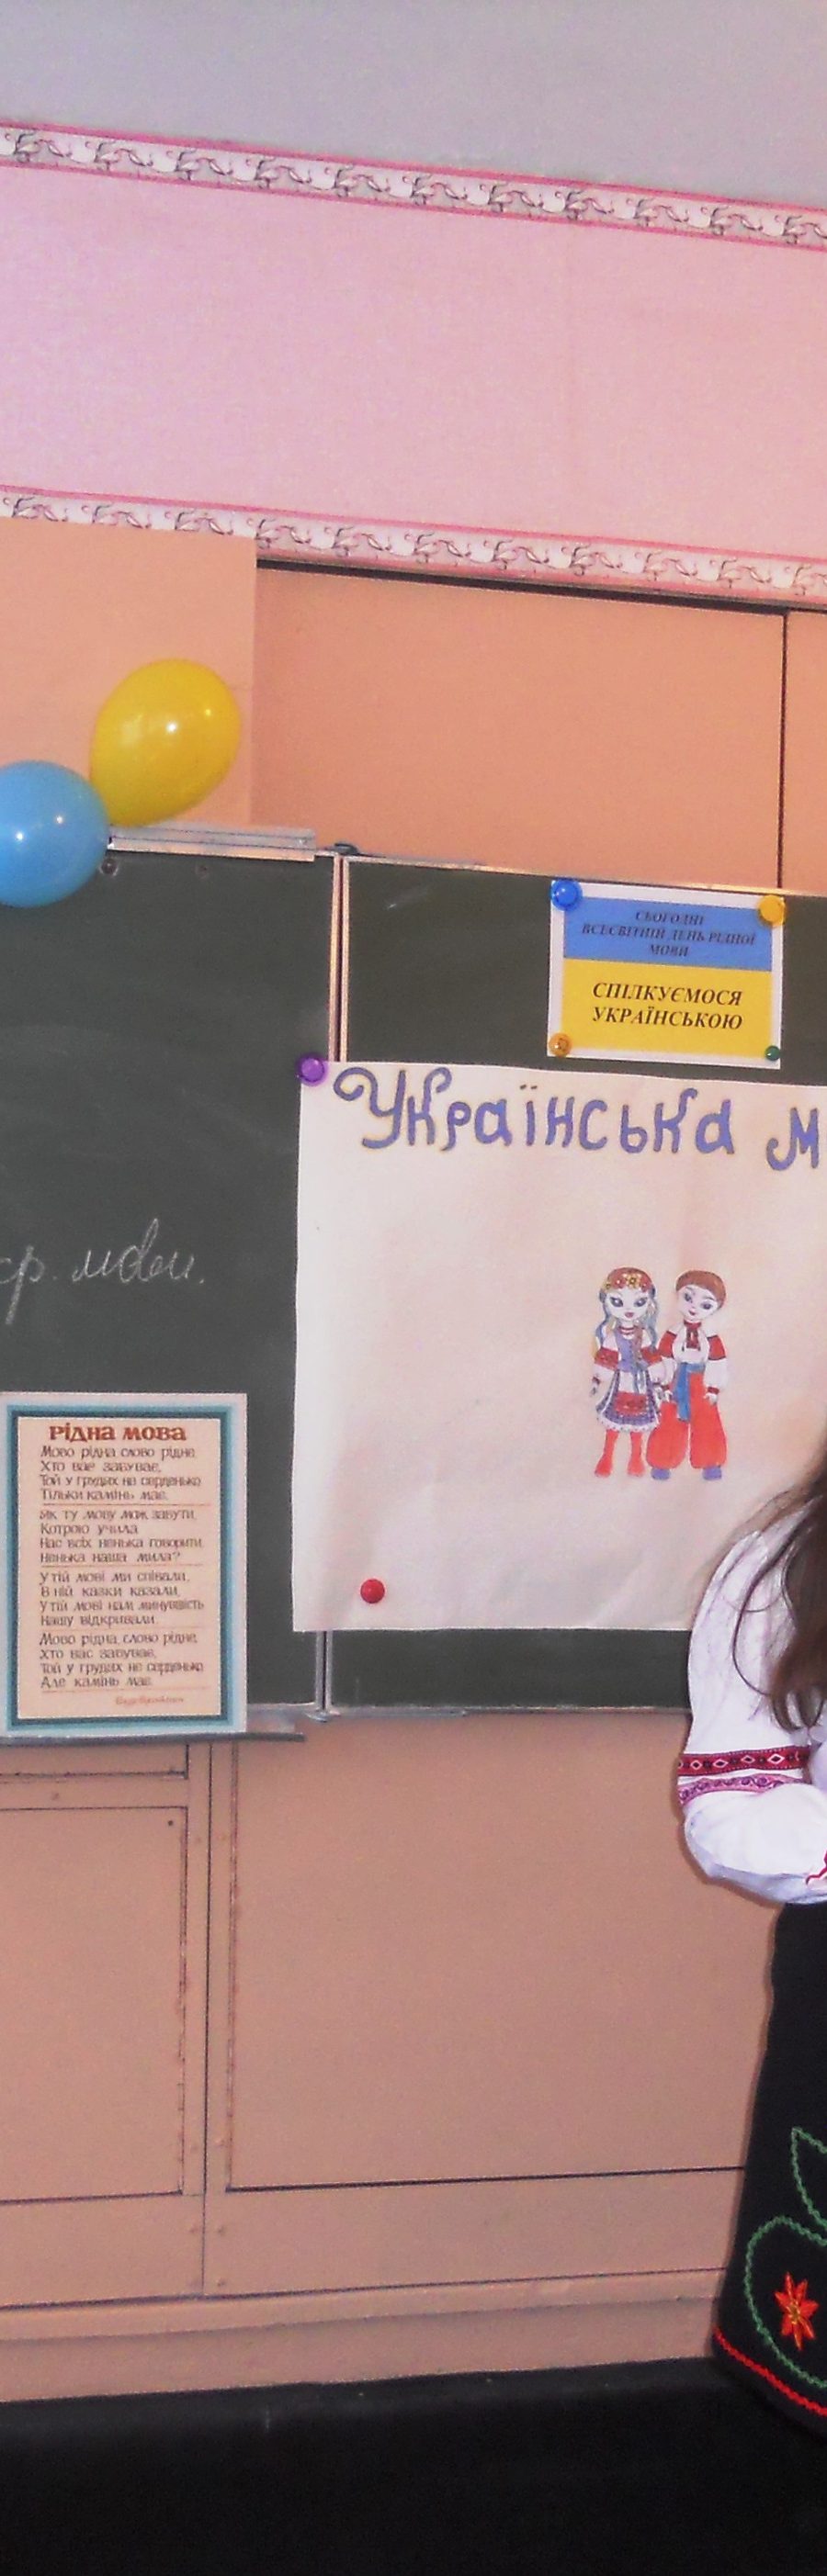 СЬОГОДНІ
ВСЕСВІТНІЙ ДЕНЬ РІДНОЇ
МОВИ
СПІЛКУЄМОСЯ
УКРАЇНСЬКОЮ
Українська м
ср. мови.
Рідна мова
Мово рідна слово рідне
Хто вас забуває,
Той у грудях не серденько
Тільки камінь має.
Як ту мову мож забути,
Котрою учила
Нас всіх ненька говорити
Ненька наша мила?
У тій мові ми співали,
В ній казки казали,
У тій мові нам минувшість
Нашу відкривали.
Мово рідна, слово рідне
Хто вас забуває,
Той у грудях не серденько
Але камінь має.